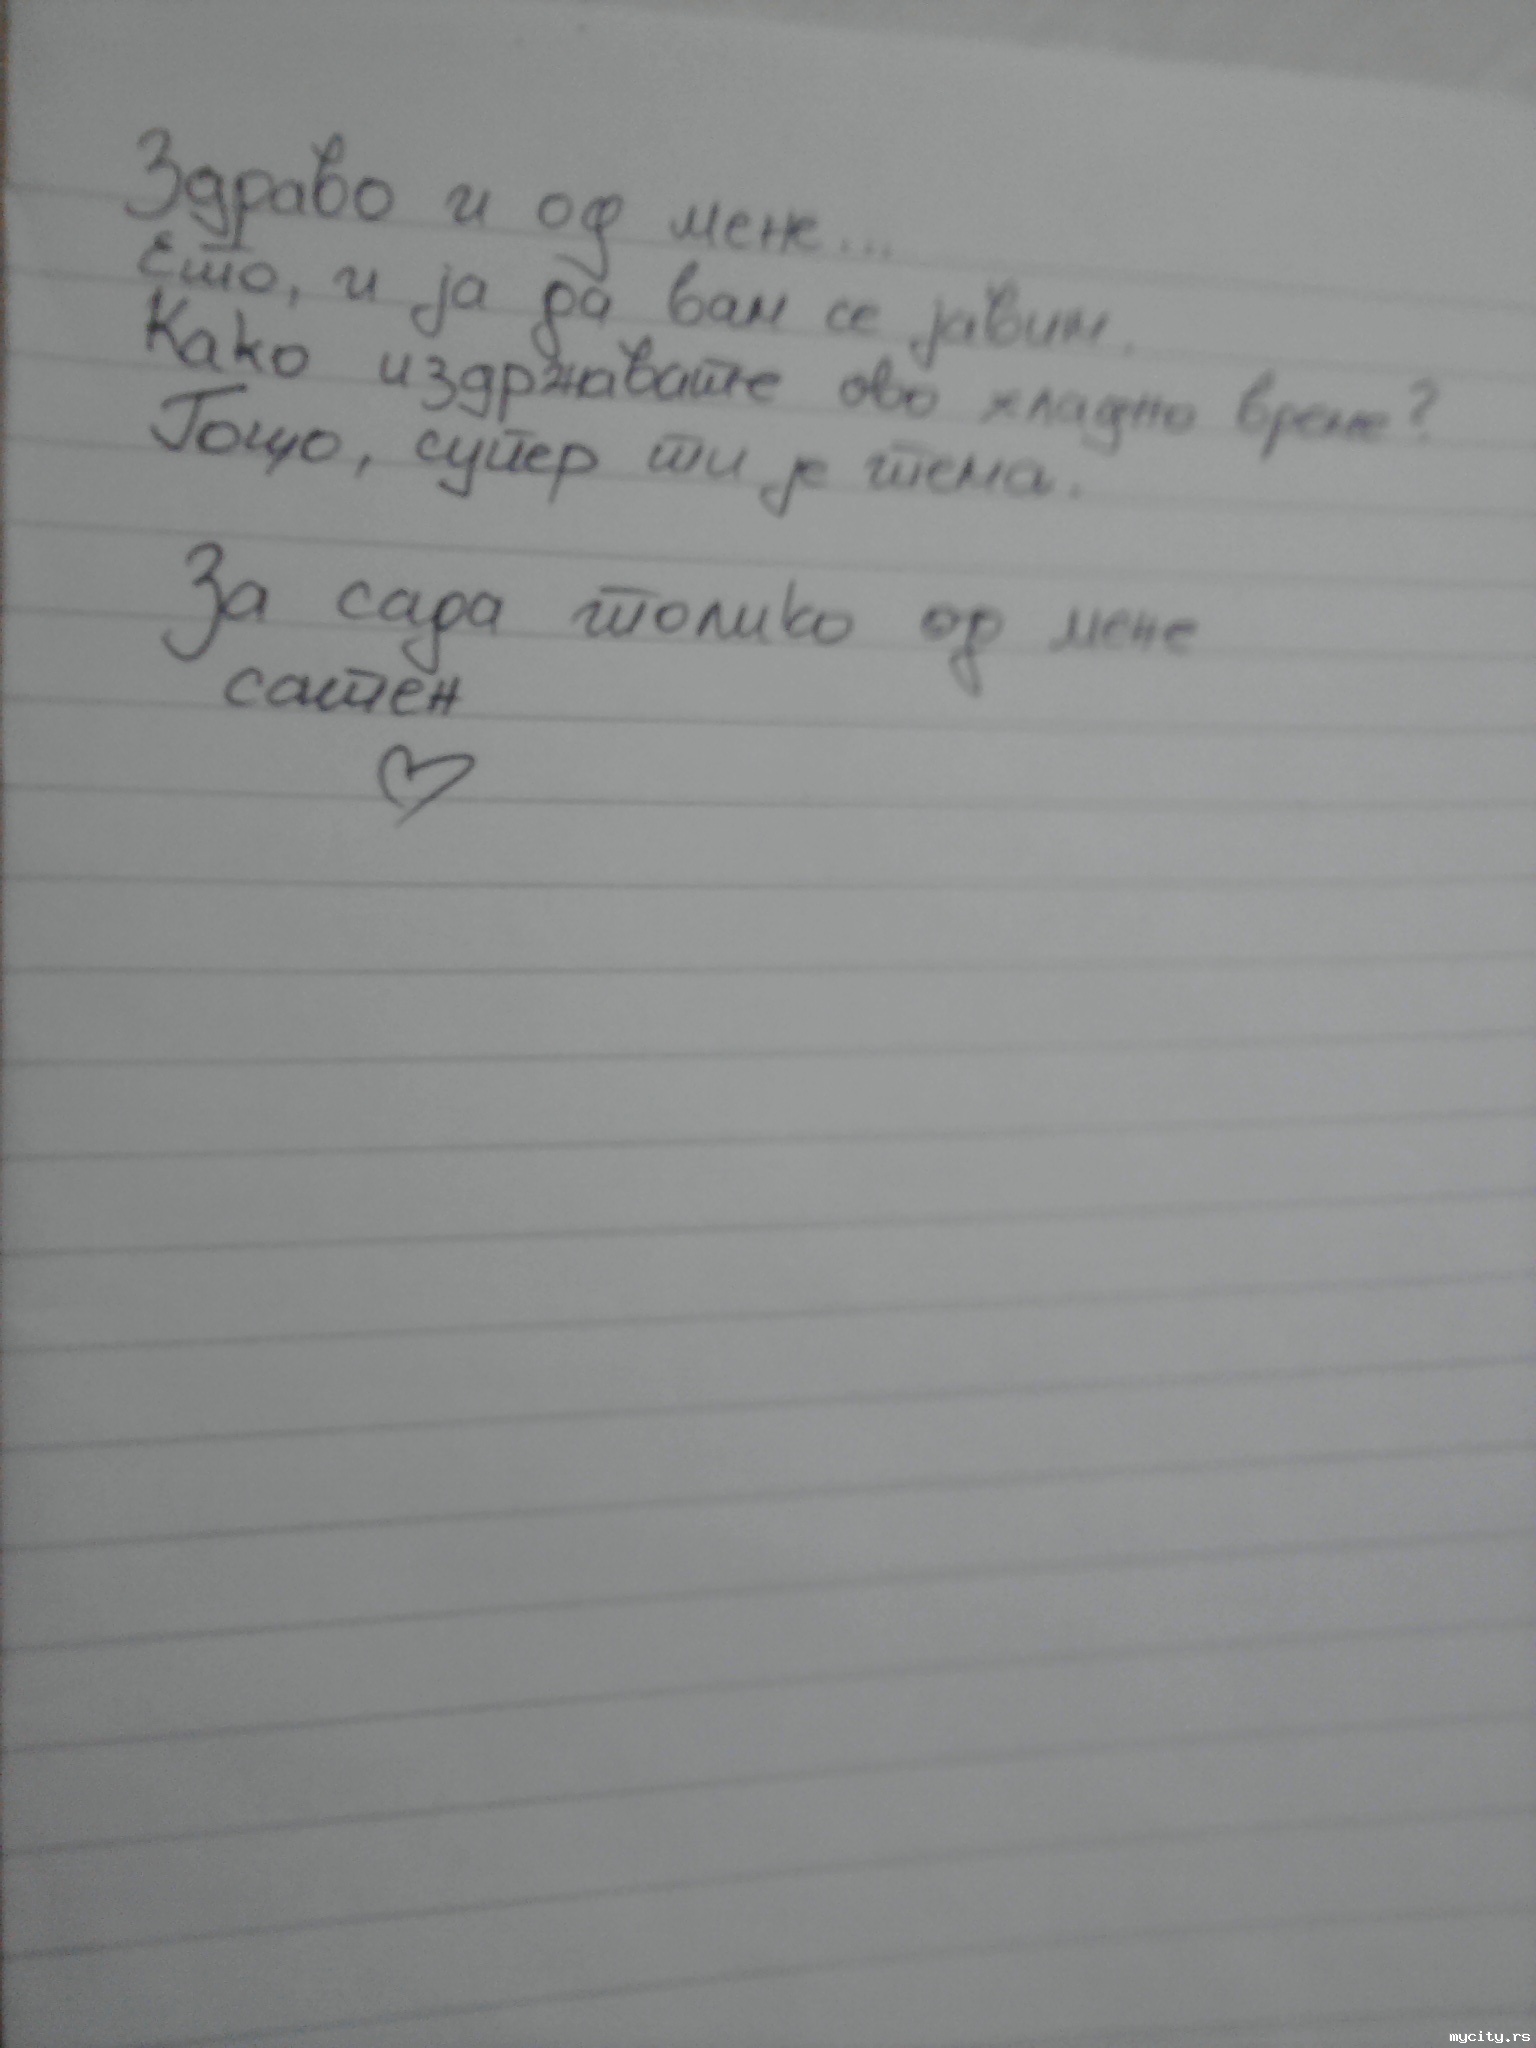 Здраво и од мене...
Ето, и ја да вам се јавим.
Како издржавате ово хладно време?
Гоцо, супер ти је тема.
За сада толико од мене
сатен
mycity.rs